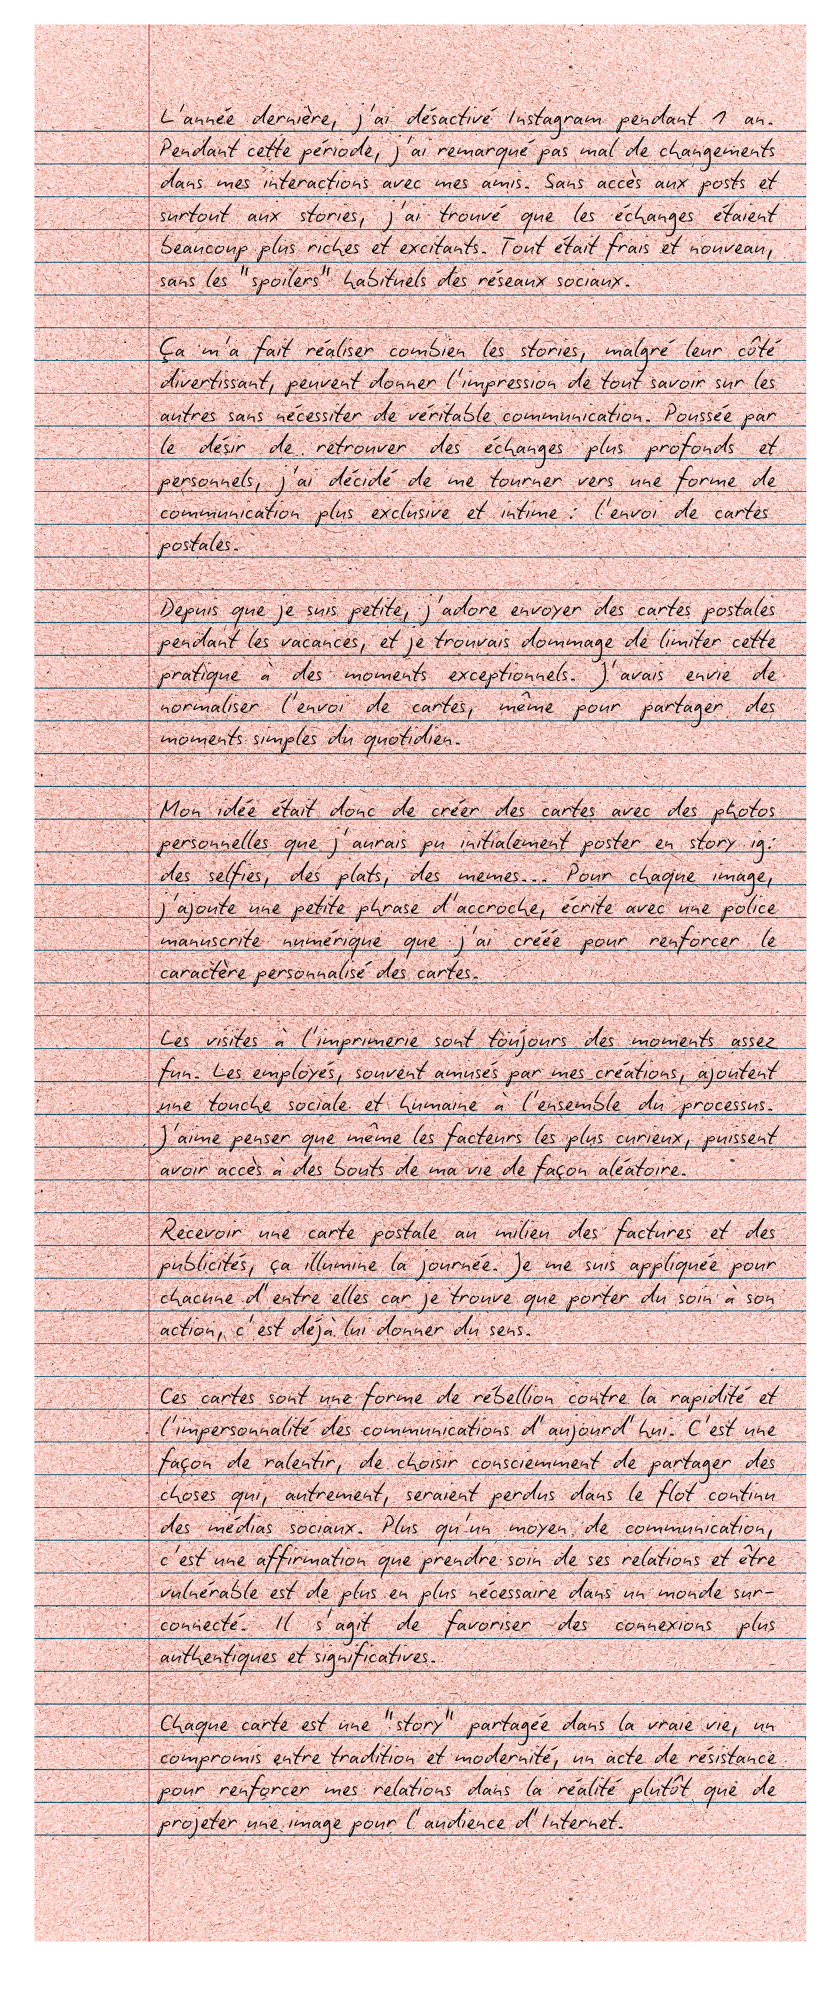 L'année dernière, j'ai désactivé Instagram pendant 1 an.
Pendant cette période, j'ai remarqué pas mal de changements
dans mes interactions avec mes amis. Sans accès aux posts et
surtout aux stories, j'ai trouvé que les échanges étaient
beaucoup plus riches et excitants. Tout était frais et nouveau,
sans les "spoilers" habituels des réseaux sociaux.
Ça m'a fait réaliser combien les stories, malgré leur côté
divertissant, peuvent donner l'impression de tout savoir sur les
autres sans nécessiter de véritable communication. Poussée par
le désir de retrouver des échanges plus profonds et
personnels, j'ai décidé de me tourner vers une forme de
communication plus exclusive et intime : l'envoi de cartes
postales.
Depuis que je suis petite, j'adore envoyer des cartes postales
pendant les vacances, et je trouvais dommage de limiter cette
pratique à des moments exceptionnels. J'avais envie de
normaliser l'envoi de cartes, même pour partager des
moments simples du quotidien.
Mon idée était donc de créer des cartes avec des photos
personnelles que j'aurais pu initialement poster en story ig:
des selfies, des plats, des memes... Pour chaque image,
j'ajoute une petite phrase d'accroche, écrite avec une police
manuscrite numérique que j'ai créée pour renforcer le
caractère personnalisé des cartes.
Les visites à l'imprimerie sont toujours des moments assez
fun. Les employés, souvent amusés par mes créations, ajoutent
une touche sociale et humaine à l'ensemble du processus.
J'aime penser que même les facteurs les plus curieux, puissent
avoir accès à des bouts de ma vie de façon aléatoire.
Recevoir une carte postale au milieu des factures et des
publicités, ça illumine la journée. Je me suis appliquée pour
chacune d'entre elles car je trouve que porter du soin à son
action, c'est déjà lui donner du sens.
Ces cartes sont une forme de rébellion contre la rapidité et
l'impersonnalité des communications d'aujourd'hui. C'est une
façon de ralentir, de choisir consciemment de partager des
choses qui, autrement, seraient perdus dans le flot continu
des médias sociaux. Plus qu'un moyen de communication,
c'est une affirmation que prendre soin de ses relations et être
vulnérable est de plus en plus nécessaire dans un monde sur-
connecté. Il s'agit de favoriser des connexions plus
authentiques et significatives.
Chaque carte est une "story" partagée dans la vraie vie, un
compromis entre tradition et modernité, un acte de résistance
pour renforcer mes relations dans la réalité plutôt que de
projeter une image pour l'audience d'Internet.